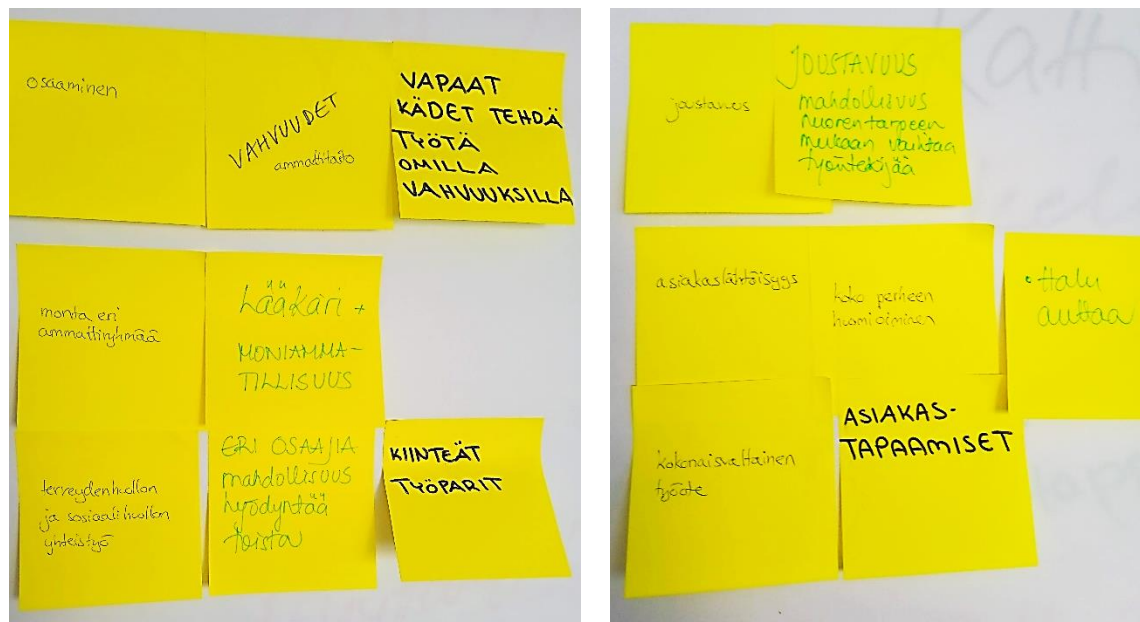 osaaminen
VAHVUUDET
ammattitaito
VAPAAT
KÄDET TEHDÄ
TYÖTÄ
OMILLA
VAHVUUKSILLA
monta eri
ammattiryhmää
Lääkäri +
MONIAMMA-
TILLISUUS
terveydenhuollon
ja sosiaalihuollon
yhteistyö
ERI OSAAJIA
mahdollisuus
hyödyntää
toista
KIINTEÄT
TYÖPARIT
joustavuus
JOUSTAVUUS
mahdollisuus
nuoren tarpeen
mukaan vaihtaa
työntekijää
asiakaslähtöisyys
koko perheen
huomioiminen
• Halu
auttaa
kokonaisvaltainen
työote
ASIAKAS-
TAPAAMISET